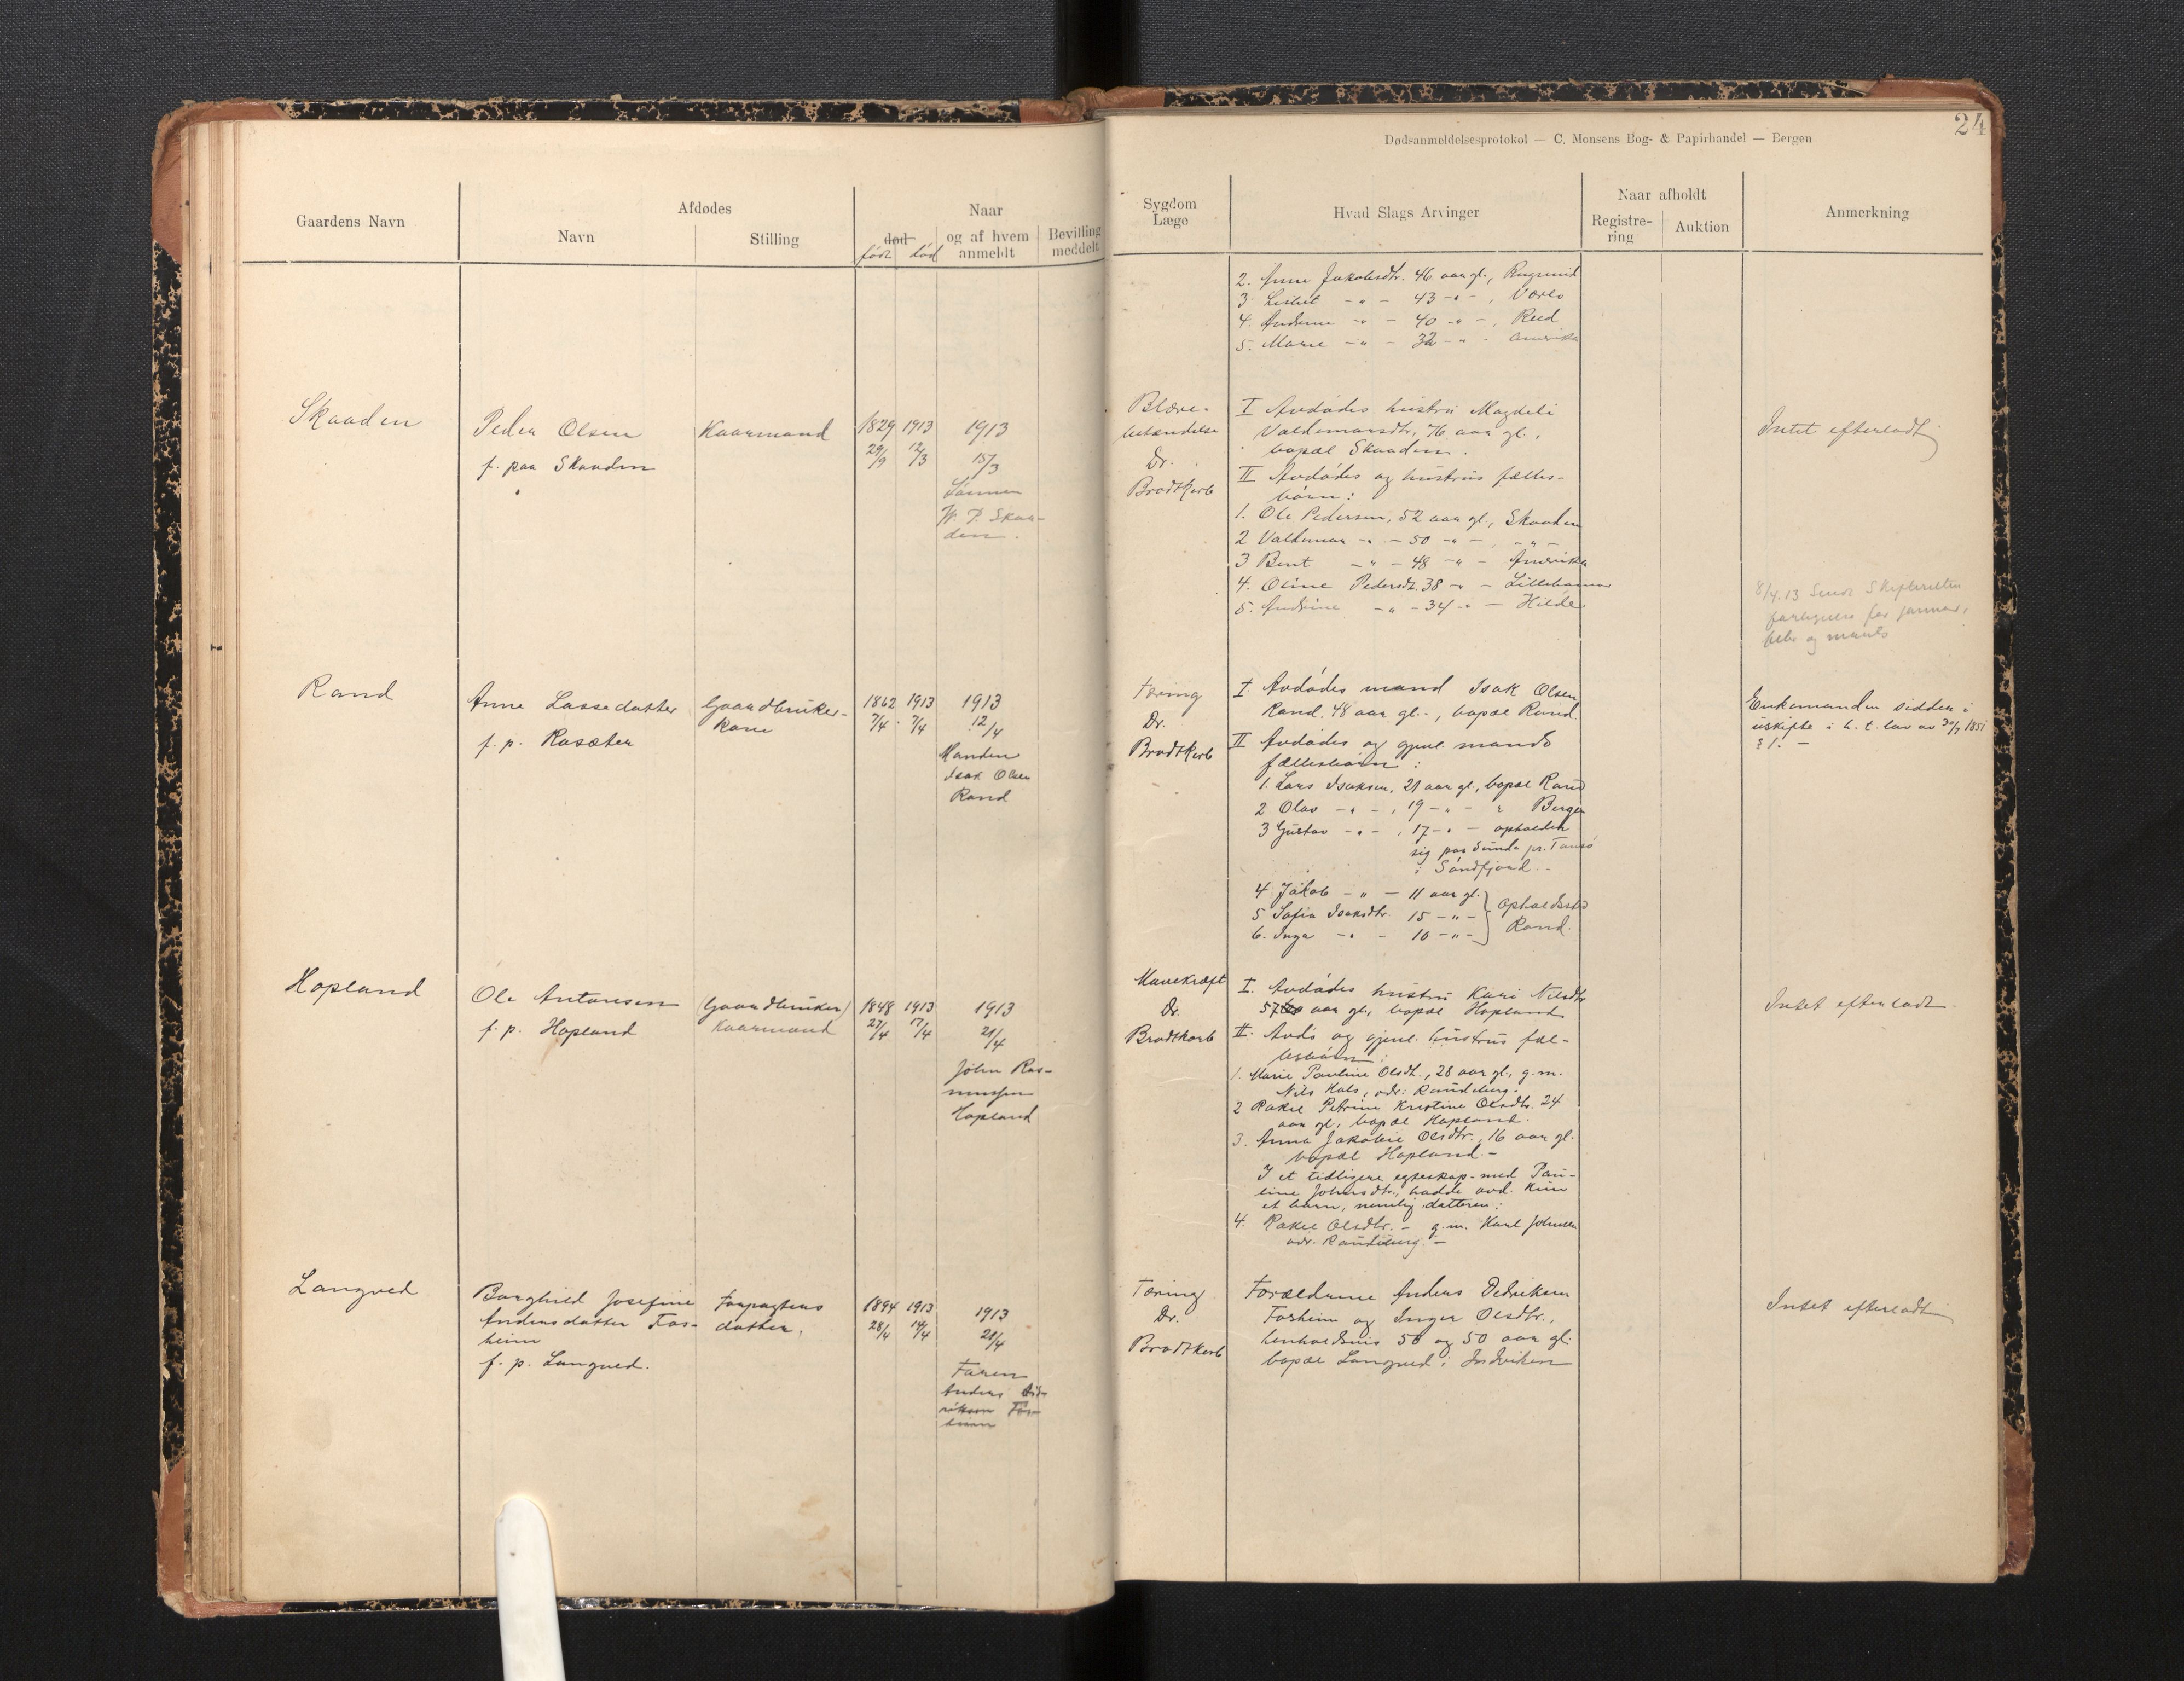 24
Dødsanmeldelsesprotokol — C. Monsens Bog- & Papirhandel — Bergen
Gaardens Navn
Afdødes
Navn
Stilling
Naar
død
født død
og af hvem
anmeldt
Bevilling
meddelt
Sygdom
Læge
Hvad Slags Arvinger
Naar afholdt
Registre-
ring
Auktion
Anmerkning
2. Anne Jakobsdtr. 46 aar gl., Rugsund
3 - " - 43 - " - ,
4. - " - 40 - " - , Reed
5. Marie - " - 32 - " - Amerika
Skaaden
Peder Olsen
f. paa Skaaden
Kaarmand
1829 1913
29/9 12/3
1913
15/3
Sønnen
P. Skaa-
den.
Blære-
betændelse
Dr.
Brodtkorb
I Avdødes hustru Magdeli
Valdemarsdtr., 76 aar gl.,
bopæl Skaaden.
II Avdødes og hustrus fælles-
børn:
1. Ole Pedersen, 52 aar gl., Skaaden
2 Valdemar - " - 50 - " - , - " -
3 Bent - " - 48 - " - Amerika
4. Oline Pedersdt. 38 - " - Lillehammer
5. Andrine - " - 34 - " - Hilde
Intet efterladt
8/4.13 Sendt Skifteretten
for januar,
febr og marts
Rand
Anne Lassedatter
f. p. Rusæter
Gaardbruker-
kone
1862 1913
7/4 7/4
1913
12/4
Manden
Isak Olsen
Rand
Tæring
Dr.
Brodtkorb
I. Avdødes mand Isak Olsen
Rand. 48 aar gl., bopæl Rand.
II Avdødes og gjenl. mands
fællesbørn:
1. Lars Isaksen, 21 aar gl., bopæl Rand
2 Olav - " - , 19 - " - " Bergen
3 Gustav - " - , 17 - " - opholder
sig paa Sunde pr.
i Søndfjord.
4 Jakob - " - 11 aar gl.
5 Sofia Isaksdtr. 15 - " -
6. Inga - " - 10 - " -
Opholdssted
Rand.
Enkemanden sidder i
uskifte i h. t. lov av 30/7 1851
§ 1. -
Hopland
Ole Antonsen
f. p. Hopland
(Gaardbruker)
Kaarmand
1848 1913
27/4 17/4
1913
21/4
John Ras-
mussen
Hopland
Mavekræft
Dr.
Brodtkorb
I. Avdødes hustru Kari Nilsdtr
57 aar gl., bopæl Hopland
II. Avdø og gjenl. hustrus fæl-
lesbørn:
1. Marie Pauline Olsdt., 28 aar gl., g.m.
Nils Hals, adr: Raudeberg.
2 Rakel Petrine Kristine Olsdtr. 24
aar gl., bopæl Hopland.
3. Anna Jakobie Olsdtr., 16 aar gl.
bopæl Hopland. -
I et tidligere egteskap med Pau-
line Johnsdtr., hadde avd. kun
et barn, nemlig datteren:
4. Rakel Olsdtr. - g.m. Karl Johnsen
adr. Raudeberg. -
Intet efterladt
Langved
Borghild Josefine
Andersdatter Fos-
heim
f. p. Langved.
Forpagters
datter,
1894 1913
28/4 14/4
1913
21/4
Faren
Anders Did-
riksen Fos-
heim
Tæring
Dr.
Brodtkorb
Forældrene Anders Dedriksen
Fosheim og Inger Olsdtr.,
henholdsvis 58 og 50 aar gl.
bopæl Langved i Indviken
Intet efterladt